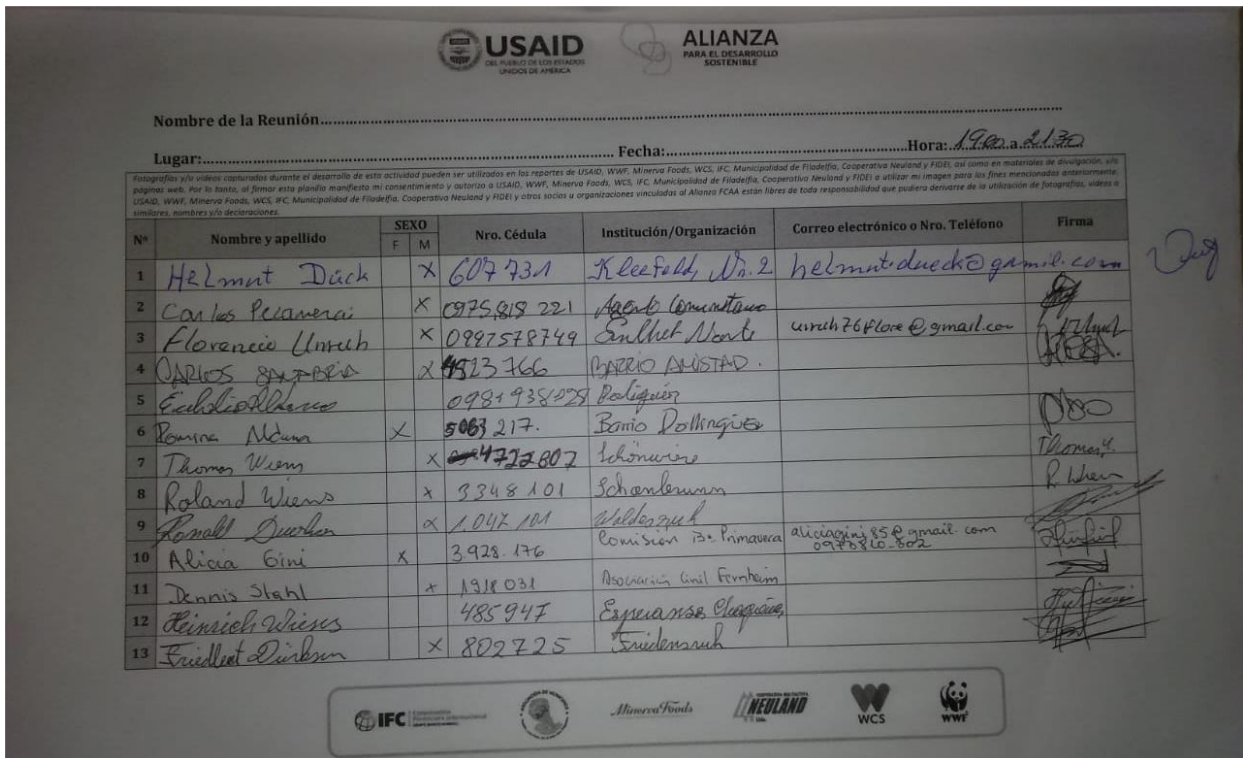 USAID
DEL PUEBLO DE LOS ESTADOS
UNIDOS DE AMÉRICA
ALIANZA
PARA EL DESARROLLO
SOSTENIBLE
Nombre de la Reunión
Lugar: Fecha: Hora: 19:00 a 21:30
Fotografías y/o videos capturados durante el desarrollo de esta actividad pueden ser utilizados en los reportes de USAID, WWF, Minerva Foods, WCS, IFC, Municipalidad de Filadelfia, Cooperativa Neuland y FIDEI, así como en materiales de divulgación, y/o
páginas web. Por lo tanto, al firmar esta planilla manifiesto mi consentimiento y autorizo a USAID, WWF, Minerva Foods, WCS, IFC, Municipalidad de Filadelfia, Cooperativa Neuland y FIDEI a utilizar mi imagen para los fines mencionados anteriormente.
USAID, WWF, Minerva Foods, WCS, IFC, Municipalidad de Filadelfia, Cooperativa Neuland y FIDEI y otros socios u organizaciones vinculadas al Alianza FCAA están libres de toda responsabilidad que pudiera derivarse de la utilización de fotografías, videos o
similares, nombres y/o declaraciones.
Nº Nombre y apellido SEXO F M Nro. Cédula Institución/Organización Correo electrónico o Nro. Teléfono Firma
1 Helmut Dück X 607 731 Kleefeld, Nr. 2 helmut.dueck@gmail.com
2 Carlos X 0975,818 221 Agente Comunitario
3 Florencio Unruh X 0997578749 Enlhet Norte unruh76flore@gmail.com
4 CARLOS SANABRIA X 4523766 BARRIO AMISTAD.
5
6 Romina X 5063 217. Barrio
7 Thomas Wiens X 4722802 Schönwiese Thomas
8 Roland Wiens X 3348101 Schönbrunn R. Wiens
9 Ronald X 1.047 101
10 Alicia Gini X 3.928.176 Comisión Bº Primavera aliciagini85@gmail.com
0973810-302
11 Dennis Stahl X 1918031 Asociación Civil Fernheim
12 Heinrich Wiens 485947 Esperanza Chaqueña
13 Friedbert Dürksen X 802725 Friedensruh
IFC
Minerva Foods
NEULAND
WCS
WWF